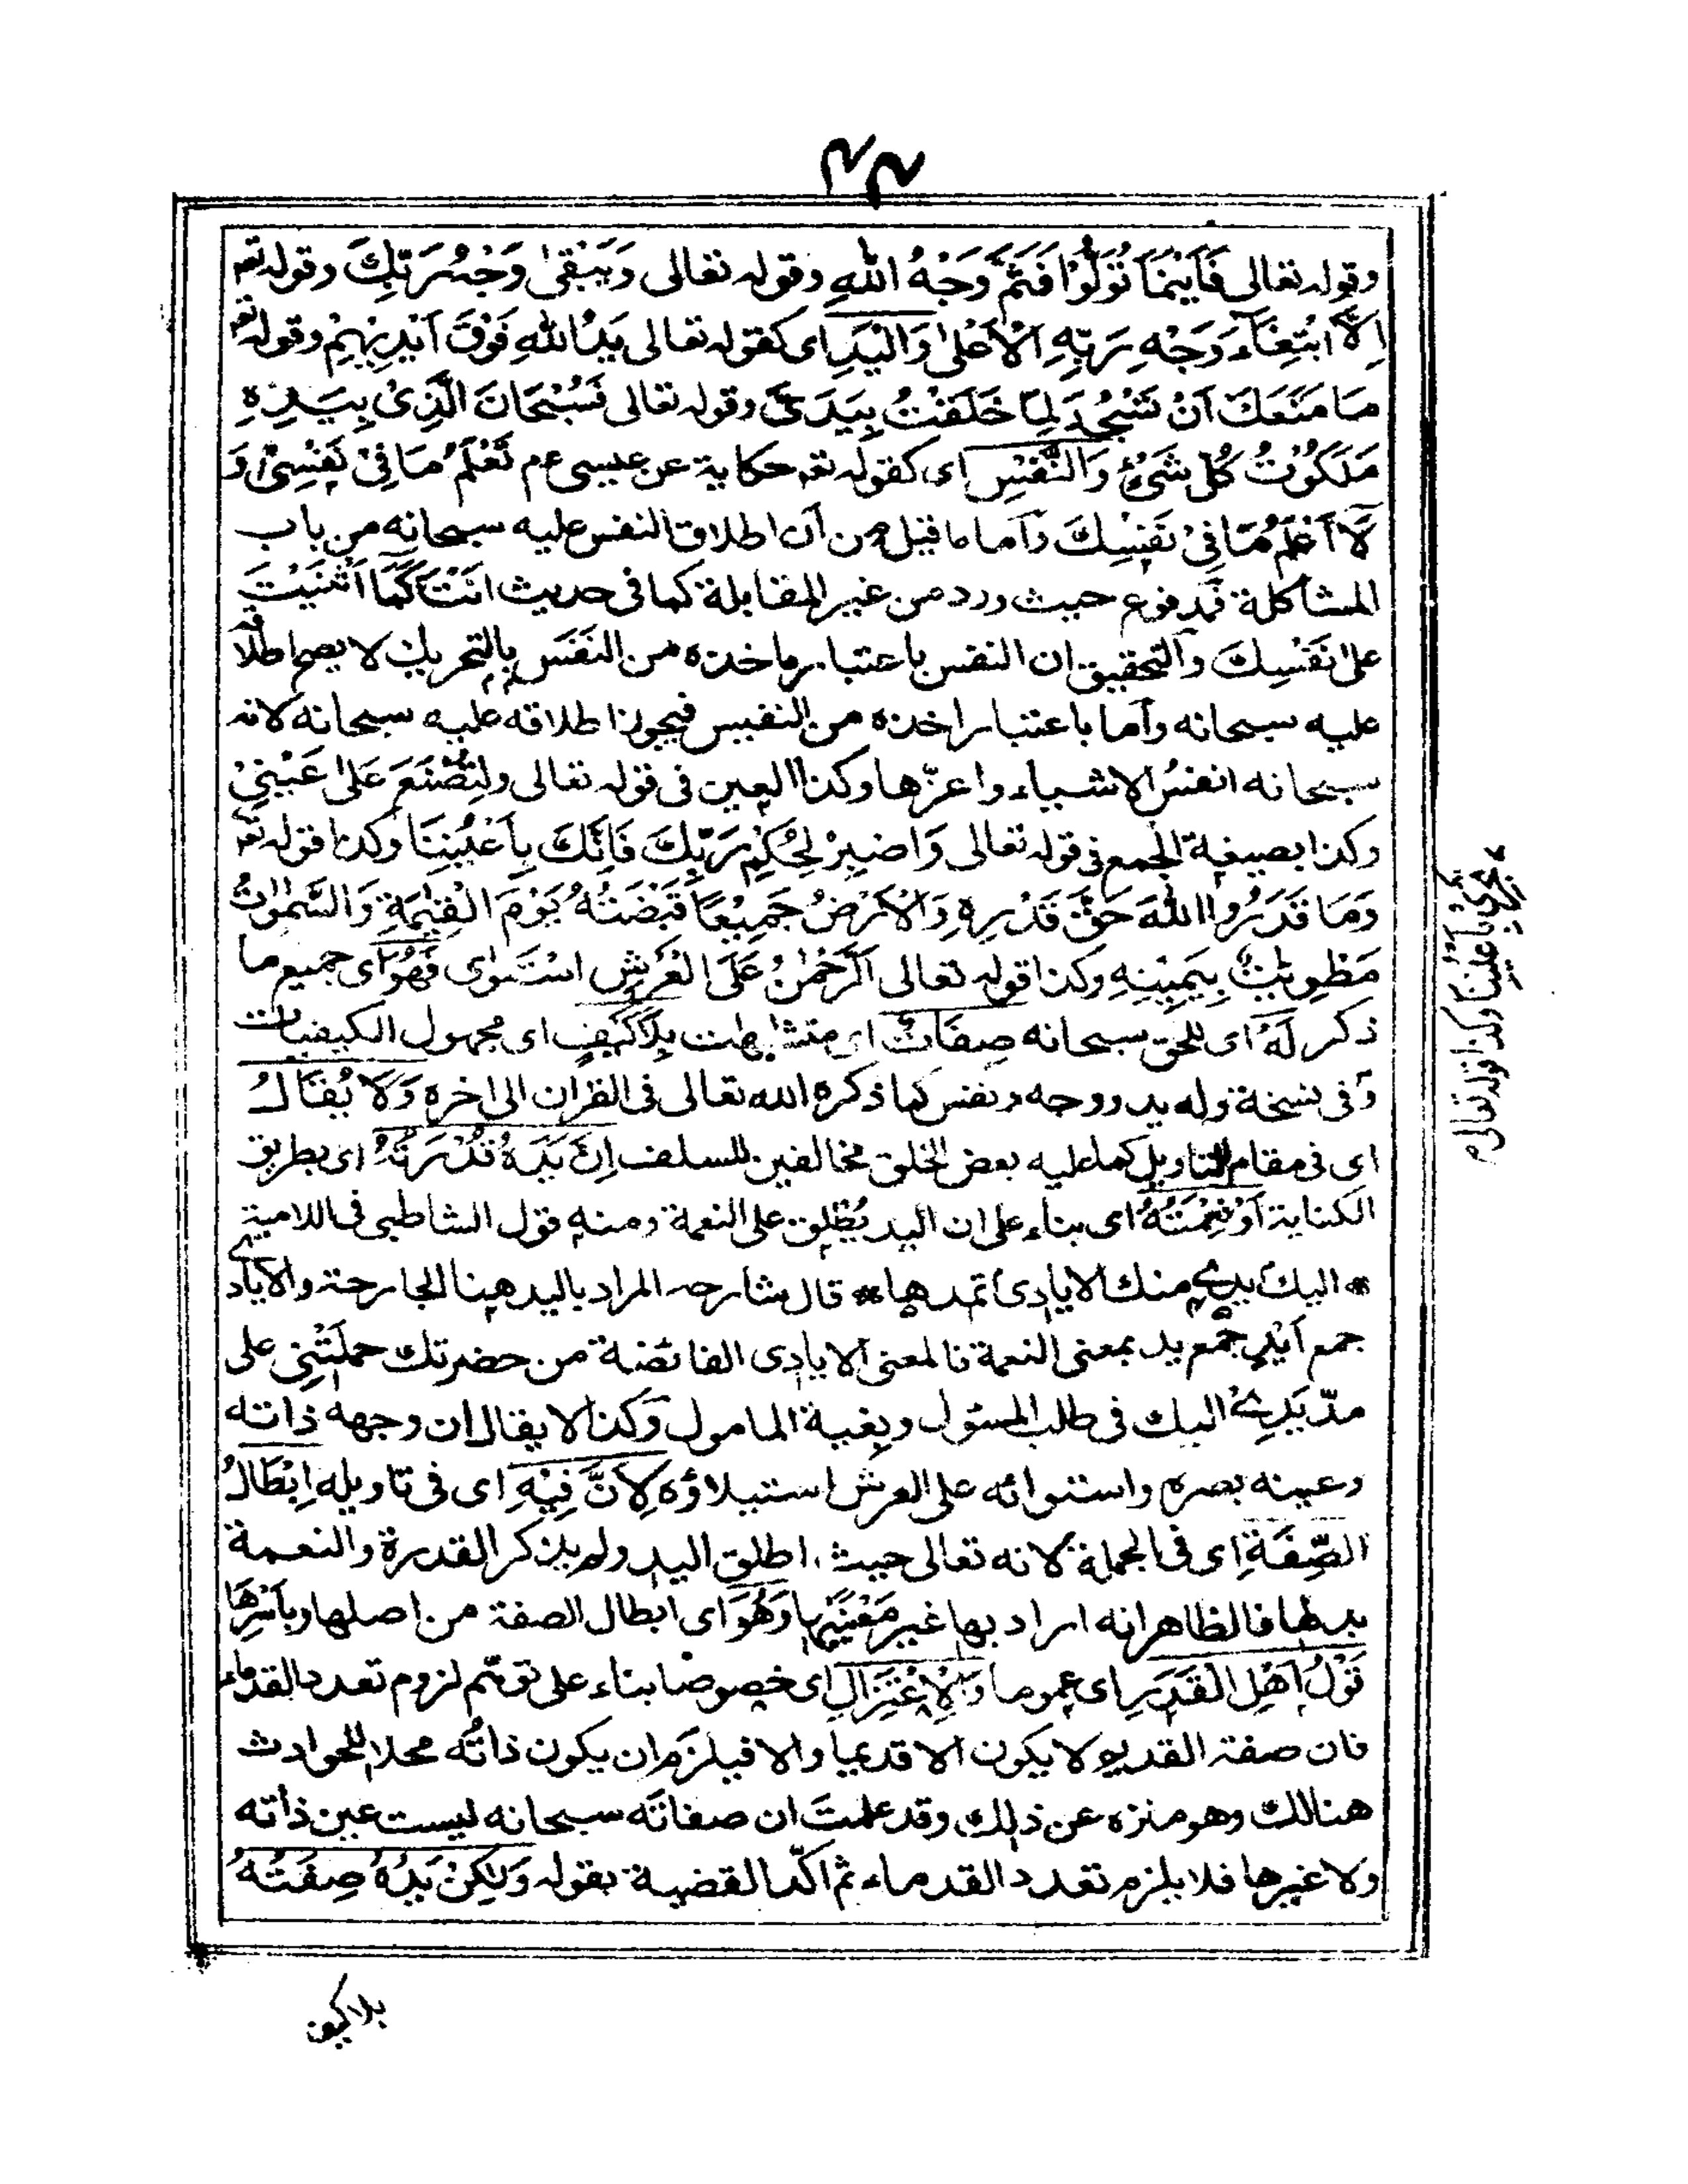 ٤٤
وقوله تعالى فَاَيْنَمَا تُوَلُّوْا فَثَمَّ وَجْهُ اللهِ وقوله تعالى وَيَبْقىٰ وَجْهُ رَبِّكَ وقوله تعـ
اِلَّا ابْتِغَآءَ وَجْهِ رَبِّهِ الْاَعْلىٰ وَالْيَدِ اى كقوله تعالى يَدُ اللهِ فَوْقَ اَيْدِيْهِمْ وقوله تعـ
مَا مَنَعَكَ اَنْ تَسْجُدَ لِمَا خَلَقْتُ بِيَدَىَّ وقوله تعالى فَسُبْحَانَ الَّذِىْ بِيَدِهٖ
مَلَكُوْتُ كُلِّ شَىْءٍ وَالنَّفْسِ اى كقوله تعـ حكاية عن عيسى عم تَعْلَمُ مَا فِىْ نَفْسِىْ وَ
لَا اَعْلَمُ مَا فِىْ نَفْسِكَ وَاما ما قيل من اَن اطلاق النفس عليه سبحانه من باب
المشاكلة فَمدفوع حيث ورد من غير المقابلة كما فى حديث انت كَمَا اَثْنَيْتَ
على نَفْسِكَ وَالتحقيق ان النفس باعتبار ماخذه من النَفَس بالتحريك لا يصح اطلاقه
عليه سبحانه وَاما باعتبار اخذه من النفيس فيجوز اطلاقه عليه سبحانه لانه
سبحانه انفسُ الاشياء واعزّها وكذا العين فى قوله تعالى ولِتُصْنَعَ عَلىٰ عَيْنِىْ
وكذا بصيغة الجمع فى قوله تعالى وَاصْبِرْ لِحُكْمِ رَبِّكَ فَاِنَّكَ بِاَعْيُنِنَا وكذا قوله تعـ
وَمَا قَدَرُوا اللهَ حَقَّ قَدْرِهٖ وَالْاَرْضُ جَمِيْعًا قَبْضَتُهُ يَوْمَ الْقِيٰمَةِ وَالسَّمٰوٰتُ
مَطْوِيّٰتٌ بِيَمِيْنِهٖ وكذا قوله تعالى اَلرَّحْمٰنُ عَلَى الْعَرْشِ اسْتَوٰى فَهُوَ اى جميع ما
ذكر لَهُ اى للحق سبحانه صِفَاتٌ اى متشابهات بِلَا كَيْفٍ اى مجهول الكيفيات
وَفى نسخة وله يد ووجه ونفس كما ذكره الله تعالى فى القران الى اخره وَلَا يُقَالُ
اى فى مقام التاويل كما عليه بعض الخلق مخالفين للسلف اِنَّ يَدَهُ قُدْرَتُهُ اى بطريق
الكناية اَوْ نِعْمَتُهُ اى بناء على ان اليد يُطْلق على النعمة ومنه قول الشاطبى فى اللامية
* اليك يدى منك الايادى تمدها * قال شارحه المراد باليد هينا الجارحة والاياد
جمع اَيْدٍ جمع يد بمعنى النعمة فالمعنى الايادى الفائضة من حضرتك حملَتْنِى على
مدّ يَدِىْ اليك فى طلب المسئول وبغية المامول وَكذا لا يقال ان وجهه ذاته
وعينه بصره واستوائه على العرش استيلاؤه لِاَنَّ فِيْهِ اى فى تاويله اِبْطَالُ
الصِّفَةِ اى فى الجملة لانه تعالى حيث اطلق اليد ولم يذكر القدرة والنعمة
بدلها فالظاهر انه اراد بها غير مَعْنَيَيْها وَهُوَ اى ابطال الصفة من اصلها وبِاَسْرِهَا
قَوْلُ اَهْلِ الْقَدَرِ اى عموما وَالْاِعْتِزَالِ اى خصوصا بناء على توهّم لزوم تعدد القدماء
فان صفة القديم لا يكون الا قديما والا فيلزم ان يكون ذاتُه محلا للحوادث
هنالك وهو منزه عن ذلك وقد علمتَ ان صفاتَه سبحانه ليست عين ذاته
ولا غيرها فلا يلزم تعدد القدماء ثم اكّد القضية بقوله وَلٰكِنْ يَدُهُ صِفَتُهُ
بلا كيف
تجرى بِاَعْيُنِنَا وكذا قوله تعالى م